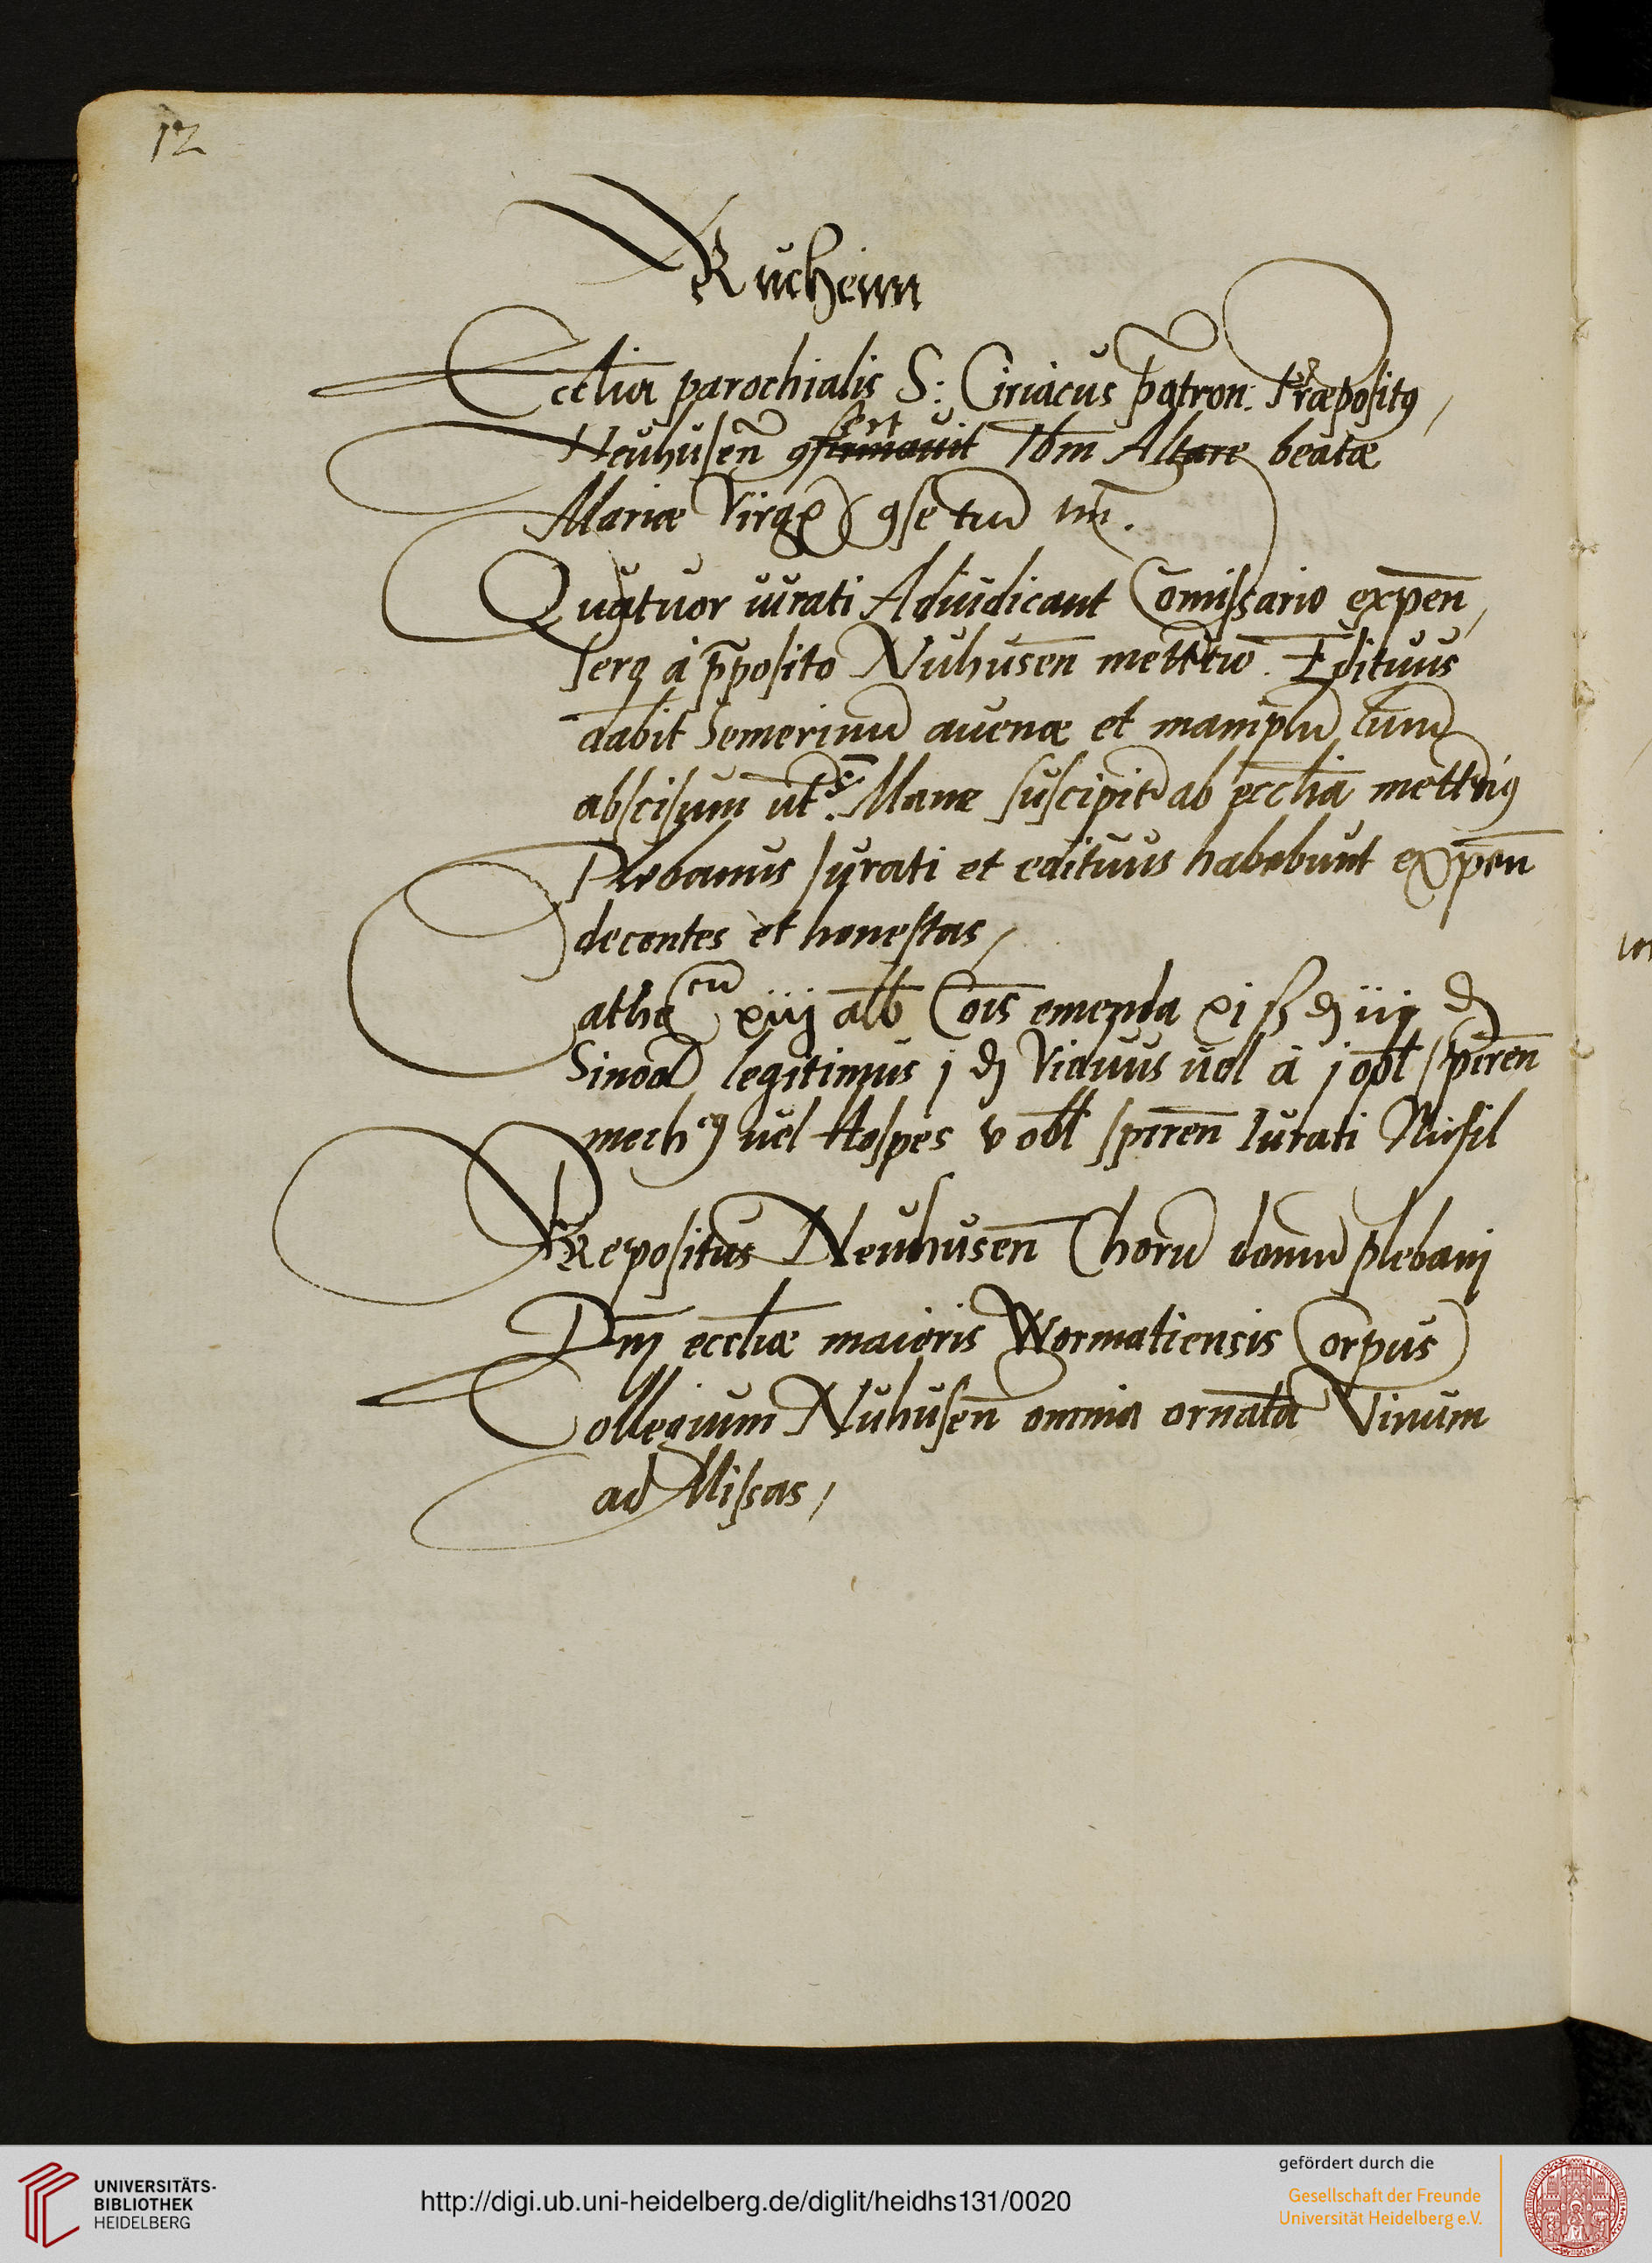 12
Rucheim
Ecclia parochialis S: Ciriacus patron. Præpositꝯ
fert
Neuhusen̄ ꝯfirmauit Ibm̄ Altare beatæ
Mariæ Virgī ꝯsetud
Quatuor iurati Adiudicant Comissario expen̄
serꝫ à p̄posito Nuhusen̄ Edituus
dabit Semerinū auenæ et manip̄lū
abscisum Mane suscipit ab ecclīa
Plebanus Iurati et edituus habebunt expen̄
decentes et honestas
Catha cū xiiij alb Cōis emenda xi ß iiij
Sinod legitimus j Viduus uel à j obl spiren̄
mech uel Hospes v obl spiren̄ Iurati Nihil
Prepositus Neuhusen̄ Chorū domū plebanj
Dnj eccliæ maioris Wormatiensis Corpus
Collegium Nuhusen̄ omnia ornata Vinum
ad Missas
UNIVERSITÄTS-
BIBLIOTHEK
HEIDELBERG
http://digi.ub.uni-heidelberg.de/diglit/heidhs131/0020
gefördert durch die
Gesellschaft der Freunde
Universität Heidelberg e.V.